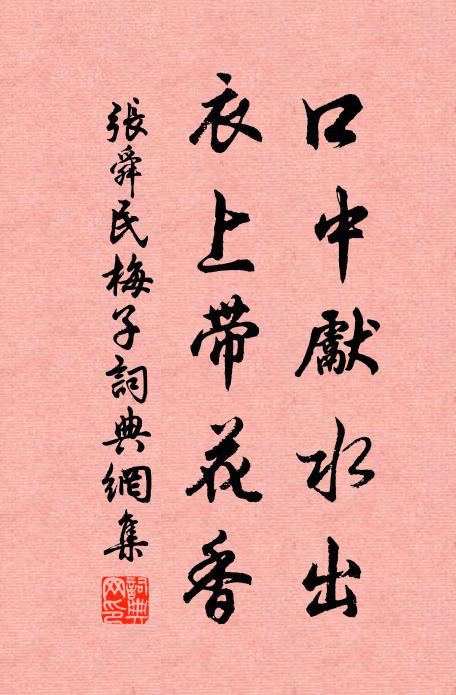 口中獻水出
衣上帶花香
張舜民梅子詞典網集
詞典網印